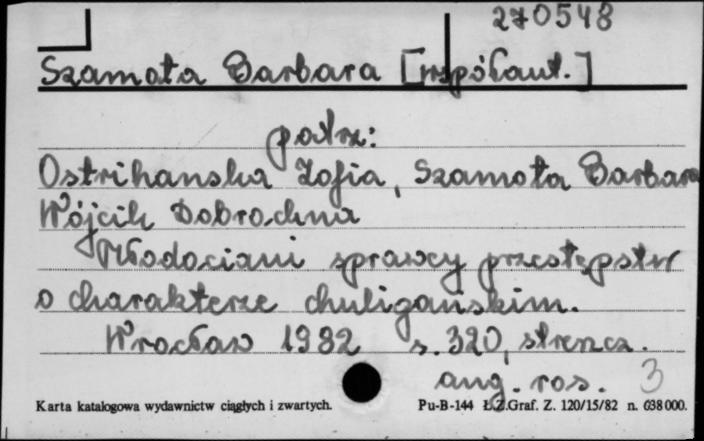 270548
Szamota Barbara [współaut.]
patrz:
Ostrihanska Zofia, Szamota Barbara
Wójcik Dobrochna
Młodociani sprawcy przestępstw
o charakterze chuligańskim.
Wrocław 1982 s. 320, streszcz.
ang. ros. 3
Karta katalogowa wydawnictw ciągłych i zwartych. Pu-B-144 Ł.Z.Graf. Z. 120/15/82 n. 638 000.